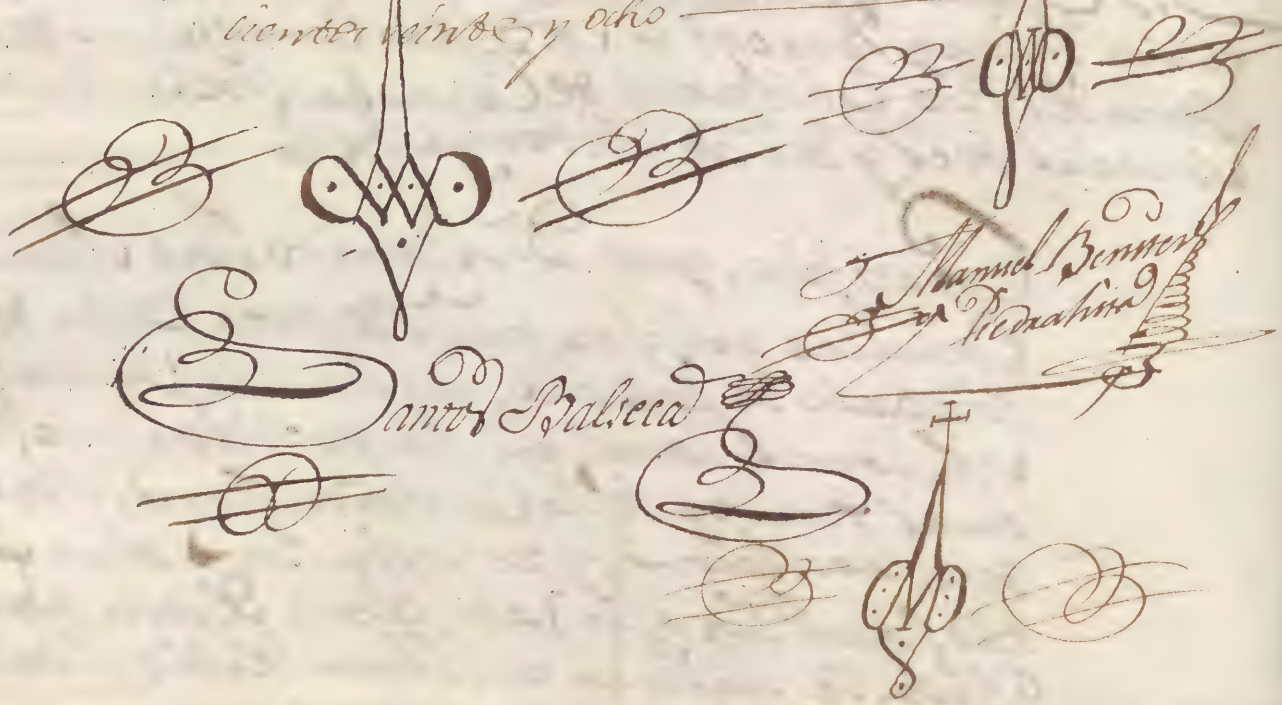 cientos veinte y ocho
Manuel Benitez
y Piedrahita
Santos Balseca